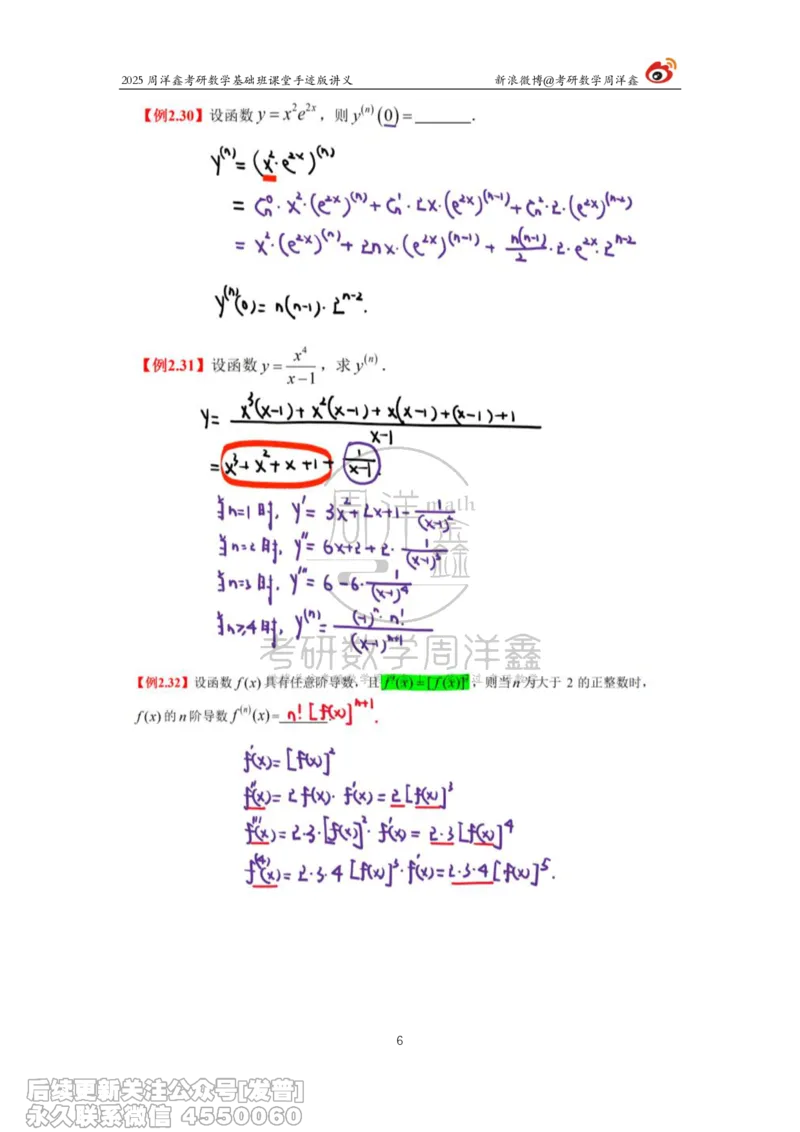 2025 周洋鑫考研数学基础班课堂手迹版讲义 新浪微博@考研数学周洋鑫
【例2.30】设函数 y = x²e^{2x}，则 y^{(n)}(0) = ______.
y^{(n)} = (x²·e^{2x})^{(n)}
= C_n^0·x²·(e^{2x})^{(n)} + C_n^1·2x·(e^{2x})^{(n-1)} + C_n^2·2·(e^{2x})^{(n-2)}
= x²·(e^{2x})^{(n)} + 2nx·(e^{2x})^{(n-1)} + \frac{n(n-1)}{2}·2·e^{2x}·2^{n-2}
y^{(n)}(0) = n(n-1)·2^{n-2}.
【例2.31】设函数 y = \frac{x^4}{x-1}，求 y^{(n)}.
y = \frac{x³(x-1)+x²(x-1)+x(x-1)+(x-1)+1}{x-1}
= x³+x²+x+1 + \frac{1}{x-1}.
当n=1时, y' = 3x²+2x+1-\frac{1}{(x-1)²}
当n=2时, y'' = 6x+2+2·\frac{1}{(x-1)³}
当n=3时, y''' = 6-6·\frac{1}{(x-1)^4}
当n≥4时, y^{(n)} = \frac{(-1)^n·n!}{(x-1)^{n+1}}
周洋鑫 math
考研数学周洋鑫
【例2.32】设函数 f(x) 具有任意阶导数，且 f'(x) = [f(x)]²，则当 n 为大于 2 的正整数时，
f(x) 的 n 阶导数 f^{(n)}(x) = n![f(x)]^{n+1}.
f'(x) = [f(x)]²
f''(x) = 2f(x)·f'(x) = 2[f(x)]³
f'''(x) = 2·3·[f(x)]²·f'(x) = 2·3[f(x)]^4
f^{(4)}(x) = 2·3·4[f(x)]³·f'(x) = 2·3·4[f(x)]^5.
6
后续更新关注公众号[发普]
永久联系微信 4550060